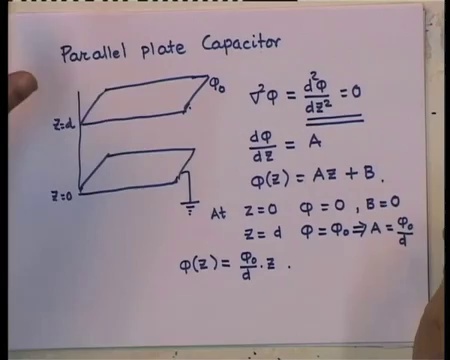 Parallel plate Capacitor
φ₀
z=d
z=0
∇²φ = d²φ/dz² = 0
dφ/dz = A
φ(z) = Az + B.
At z=0 φ=0, B=0
z=d φ=φ₀ ⇒ A = φ₀/d
φ(z) = φ₀/d · z .